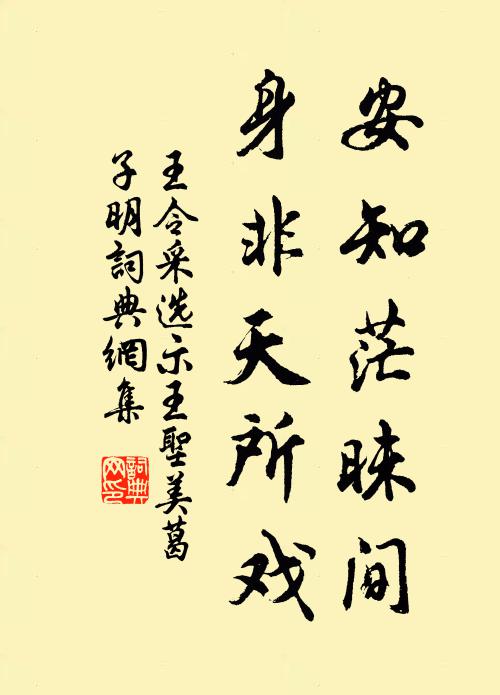 安知茫昧间
身非天所戏
王令采选示王聖美葛
子明詞典網集
詞典网印